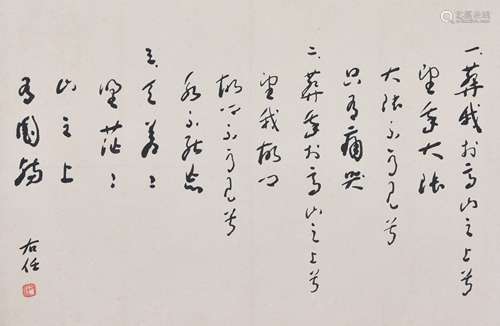 一、葬我於高山之上兮
望我大陸
大陸不可見兮
只有痛哭
二、葬我於高山之上兮
望我故鄉
故鄉不可見兮
永不能忘
三、天蒼々
野茫々
山之上
有國殤
右任